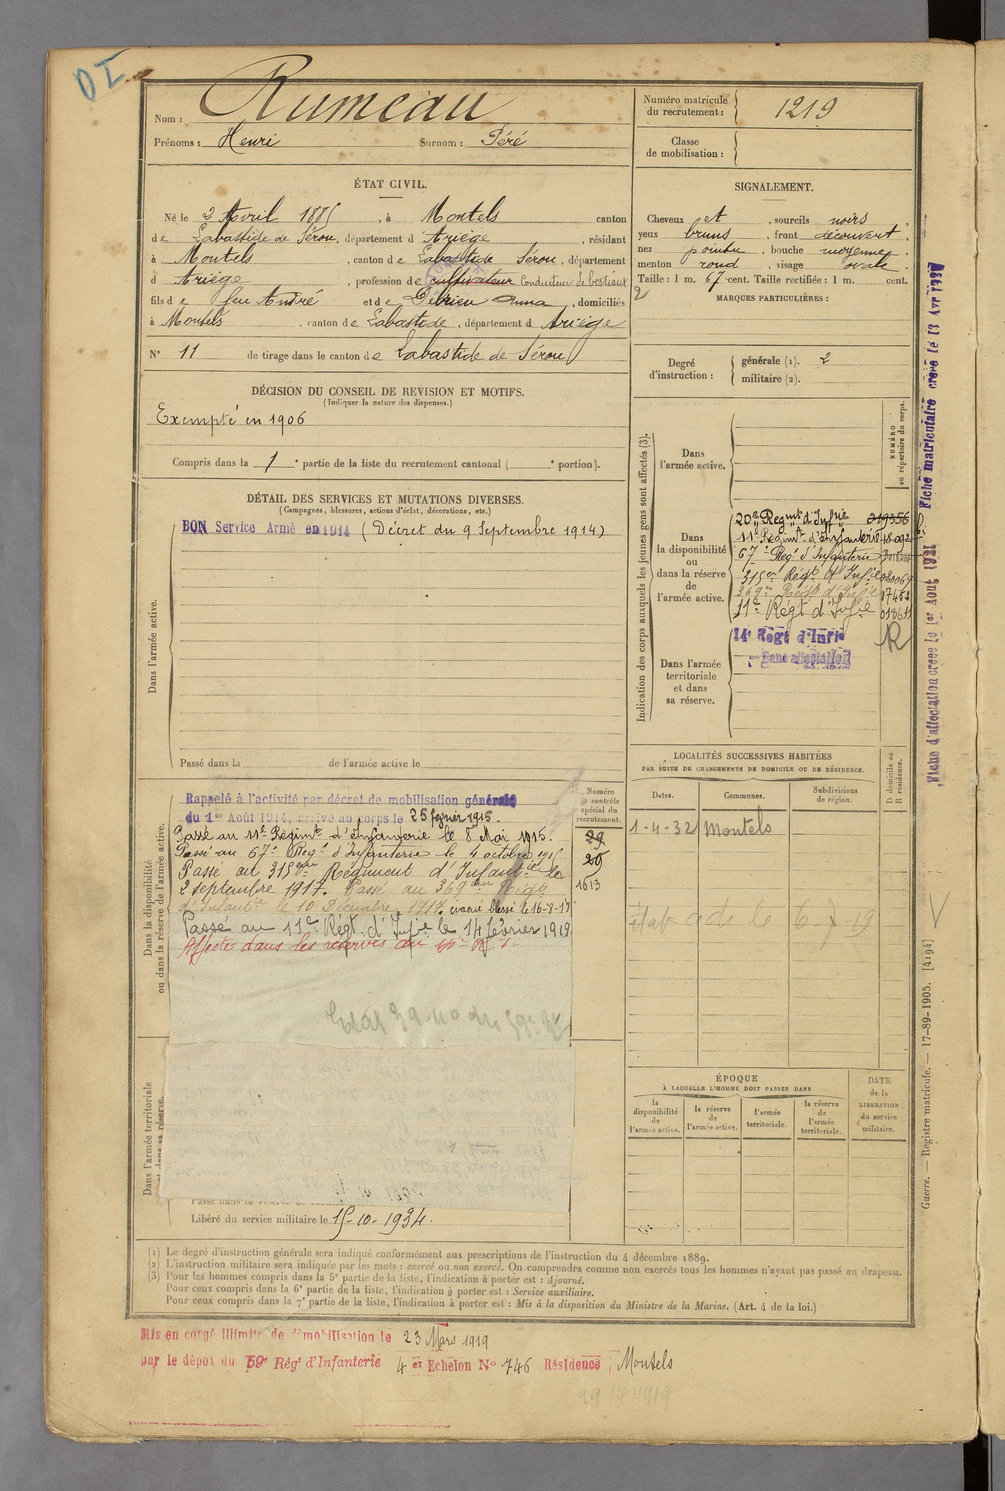 DI
Nom : Rumeau
Prénoms : Henri Surnom : Péré
Numéro matricule du recrutement : 1219
Classe de mobilisation :
ÉTAT CIVIL.
Né le 2 Avril 1885, à Montels canton
de Labastide de Sérou, département d Ariège, résidant
à Montels, canton de Labastide Sérou, département
d Ariège, profession de cultivateur Conducteur de bestiaux
fils de feu André et de Anna, domiciliés
à Montels, canton de Labastide, département d Ariège
N° 11 de tirage dans le canton de Labastide de Sérou
SIGNALEMENT.
Cheveux et, sourcils noirs
yeux bruns, front découvert,
nez pointu, bouche moyenne,
menton rond, visage ovale.
Taille : 1 m. 67 cent. Taille rectifiée : 1 m. cent.
2
MARQUES PARTICULIÈRES :
Degré d'instruction : générale (1). 2
militaire (2).
DÉCISION DU CONSEIL DE REVISION ET MOTIFS.
(Indiquer la nature des dispenses.)
Exempté en 1906
Compris dans la 1 e partie de la liste du recrutement cantonal ( e portion).
DÉTAIL DES SERVICES ET MUTATIONS DIVERSES.
(Campagnes, blessures, actions d'éclat, décorations, etc.)
BON Service Armé en 1914 (Décret du 9 Septembre 1914)
Dans l'armée active.
Passé dans la de l'armée active le
Indication des corps auxquels les jeunes gens sont affectés (3).
NUMÉRO au répertoire du corps.
Dans l'armée active.
Dans la disponibilité ou dans la réserve de l'armée active.
20e Regmt d'Infrie
11e Regimt d'Infanterie 18092
67e Regt d'Infanterie
315er Régt d'Infie
369e Régt d'Infie 17482
11e Régt d'Infie 018611
R
Dans l'armée territoriale et dans sa réserve.
14e Régt d'Infie
Sans affectation
Fiche d'affectation créée le 1er Août 1921 Fiche matriculaire créée le 13 Avr
Dans la disponibilité ou dans la réserve de l'armée active.
Rappelé à l'activité par décret de mobilisation générale
du 1er Août 1914, arrivé au corps le 25 février 1915.
Passé au 11e Régimt d'Infanterie le 8 Mai 1915.
Passé au 67e Regt d'Infanterie le 4 octobre 1915
Passé au 315ème Régiment d'Infanterie le
2 septembre 1917. Passé au 369ème Régt
d'Infantie le 10 Décembre 1917. évacué blessé le 16-8-17
Passé au 11e Régt d'Infie le 14 février 1919
Affecté dans les réserves au
Numéro au contrôle spécial du recrutement.
29
1613
LOCALITÉS SUCCESSIVES HABITÉES
PAR SUITE DE CHANGEMENTS DE DOMICILE OU DE RÉSIDENCE.
Dates. Communes. Subdivisions de région. D domicile ou R résidence.
1-4-32 Montels
ÉPOQUE
À LAQUELLE L'HOMME DOIT PASSER DANS
la disponibilité de l'armée active. la réserve de l'armée active. l'armée territoriale. la réserve de l'armée territoriale.
DATE de la LIBÉRATION du service militaire.
Dans l'armée territoriale et dans sa réserve.
Libéré du service militaire le 15-10-1934.
(1) Le degré d'instruction générale sera indiqué conformément aux prescriptions de l'instruction du 4 décembre 1889.
(2) L'instruction militaire sera indiquée par les mots : exercé ou non exercé. On comprendra comme non exercés tous les hommes n'ayant pas passé au drapeau.
(3) Pour les hommes compris dans la 5e partie de la liste, l'indication à porter est : Ajourné.
Pour ceux compris dans la 6e partie de la liste, l'indication à porter est : Service auxiliaire.
Pour ceux compris dans la 7e partie de la liste, l'indication à porter est : Mis à la disposition du Ministre de la Marine. (Art. 4 de la loi.)
Guerre. — Registre matricule. — 17-89-1905. [4194]
Mis en congé illimité de démobilisation le 23 Mars 1919
par le dépôt du 59e Régt d'Infanterie 4 er Echelon N° 746 Résidence, Montels
29/4/1919